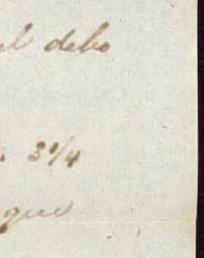 el debo
3 1/4
que